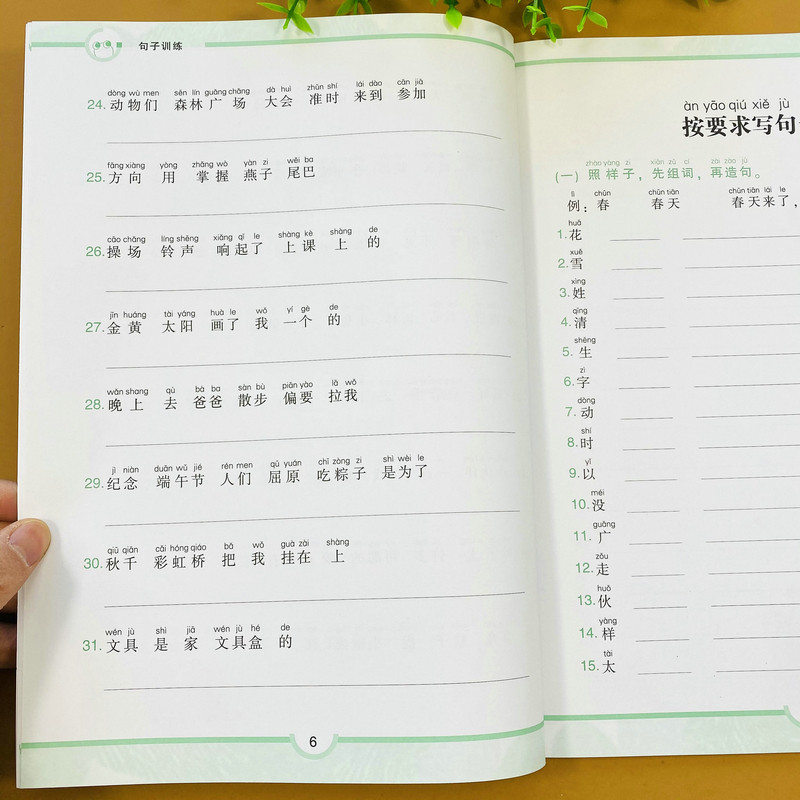 句子训练
dòng wù men sēn lín guǎng chǎng dà huì zhǔn shí lái dào cān jiā
24. 动物们 森林广场 大会 准时 来到 参加
fāng xiàng yòng zhǎng wò yàn zi wěi ba
25. 方向 用 掌握 燕子 尾巴
cāo chǎng líng shēng xiǎng qǐ le shàng kè shàng de
26. 操场 铃声 响起了 上课 上 的
jīn huáng tài yáng huà le wǒ yí gè de
27. 金黄 太阳 画了 我 一个 的
wǎn shang qù bà ba sàn bù piān yào lā wǒ
28. 晚上 去 爸爸 散步 偏要 拉我
jì niàn duān wǔ jié rén men qū yuán chī zòng zi shì wèi le
29. 纪念 端午节 人们 屈原 吃粽子 是为了
qiū qiān cǎi hóng qiáo bǎ wǒ guà zài shàng
30. 秋千 彩虹桥 把 我 挂在 上
wén jù shì jiā wén jù hé de
31. 文具 是 家 文具盒 的
6
àn yāo qiú xiě jù
按要求写句
zhào yàng zi xiān zǔ cí zài zào jù
(一) 照样子，先组词，再造句。
lì chūn chūn tiān chūn tiān lái le
例：春 春天 春天来了，
huā
1. 花
xuě
2. 雪
xìng
3. 姓
qīng
4. 清
shēng
5. 生
zì
6. 字
dòng
7. 动
shí
8. 时
yǐ
9. 以
méi
10. 没
guǎng
11. 广
zǒu
12. 走
huǒ
13. 伙
yàng
14. 样
tài
15. 太